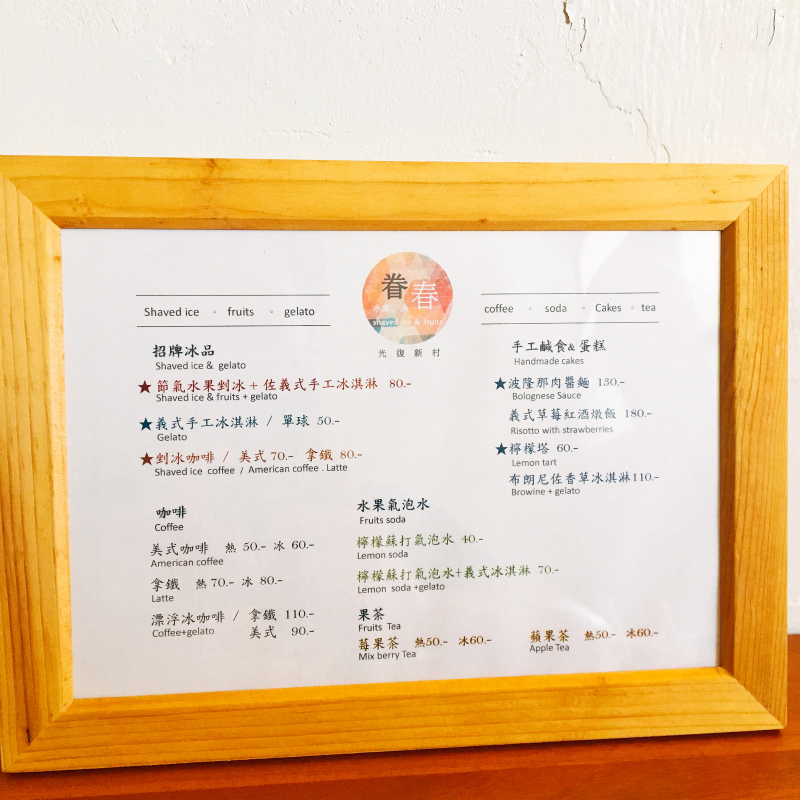 Shaved ice ◦ fruits ◦ gelato
眷春
shaved ice & fruits
光復新村
coffee ◦ soda ◦ Cakes ◦ tea
招牌冰品
Shaved ice & gelato
★節氣水果剉冰+佐義式手工冰淇淋 80.-
Shaved ice & fruits + gelato
★義式手工冰淇淋 / 單球 50.-
Gelato
★剉冰咖啡 / 美式70.- 拿鐵 80.-
Shaved ice coffee / American coffee . Latte
手工鹹食&蛋糕
Handmade cakes
★波隆那肉醬麵 130.-
Bolognese Sauce
義式草莓紅酒燉飯 180.-
Risotto with strawberries
★檸檬塔 60.-
Lemon tart
布朗尼佐香草冰淇淋110.-
Browine + gelato
咖啡
Coffee
美式咖啡 熱 50.- 冰 60.-
American coffee
拿鐵 熱70.- 冰 80.-
Latte
漂浮冰咖啡 / 拿鐵 110.-
Coffee+gelato 美式 90.-
水果氣泡水
Fruits soda
檸檬蘇打氣泡水 40.-
Lemon soda
檸檬蘇打氣泡水+義式冰淇淋 70.-
Lemon soda +gelato
果茶
Fruits Tea
莓果茶 熱50.- 冰60.-
Mix berry Tea
蘋果茶 熱50.- 冰60.-
Apple Tea